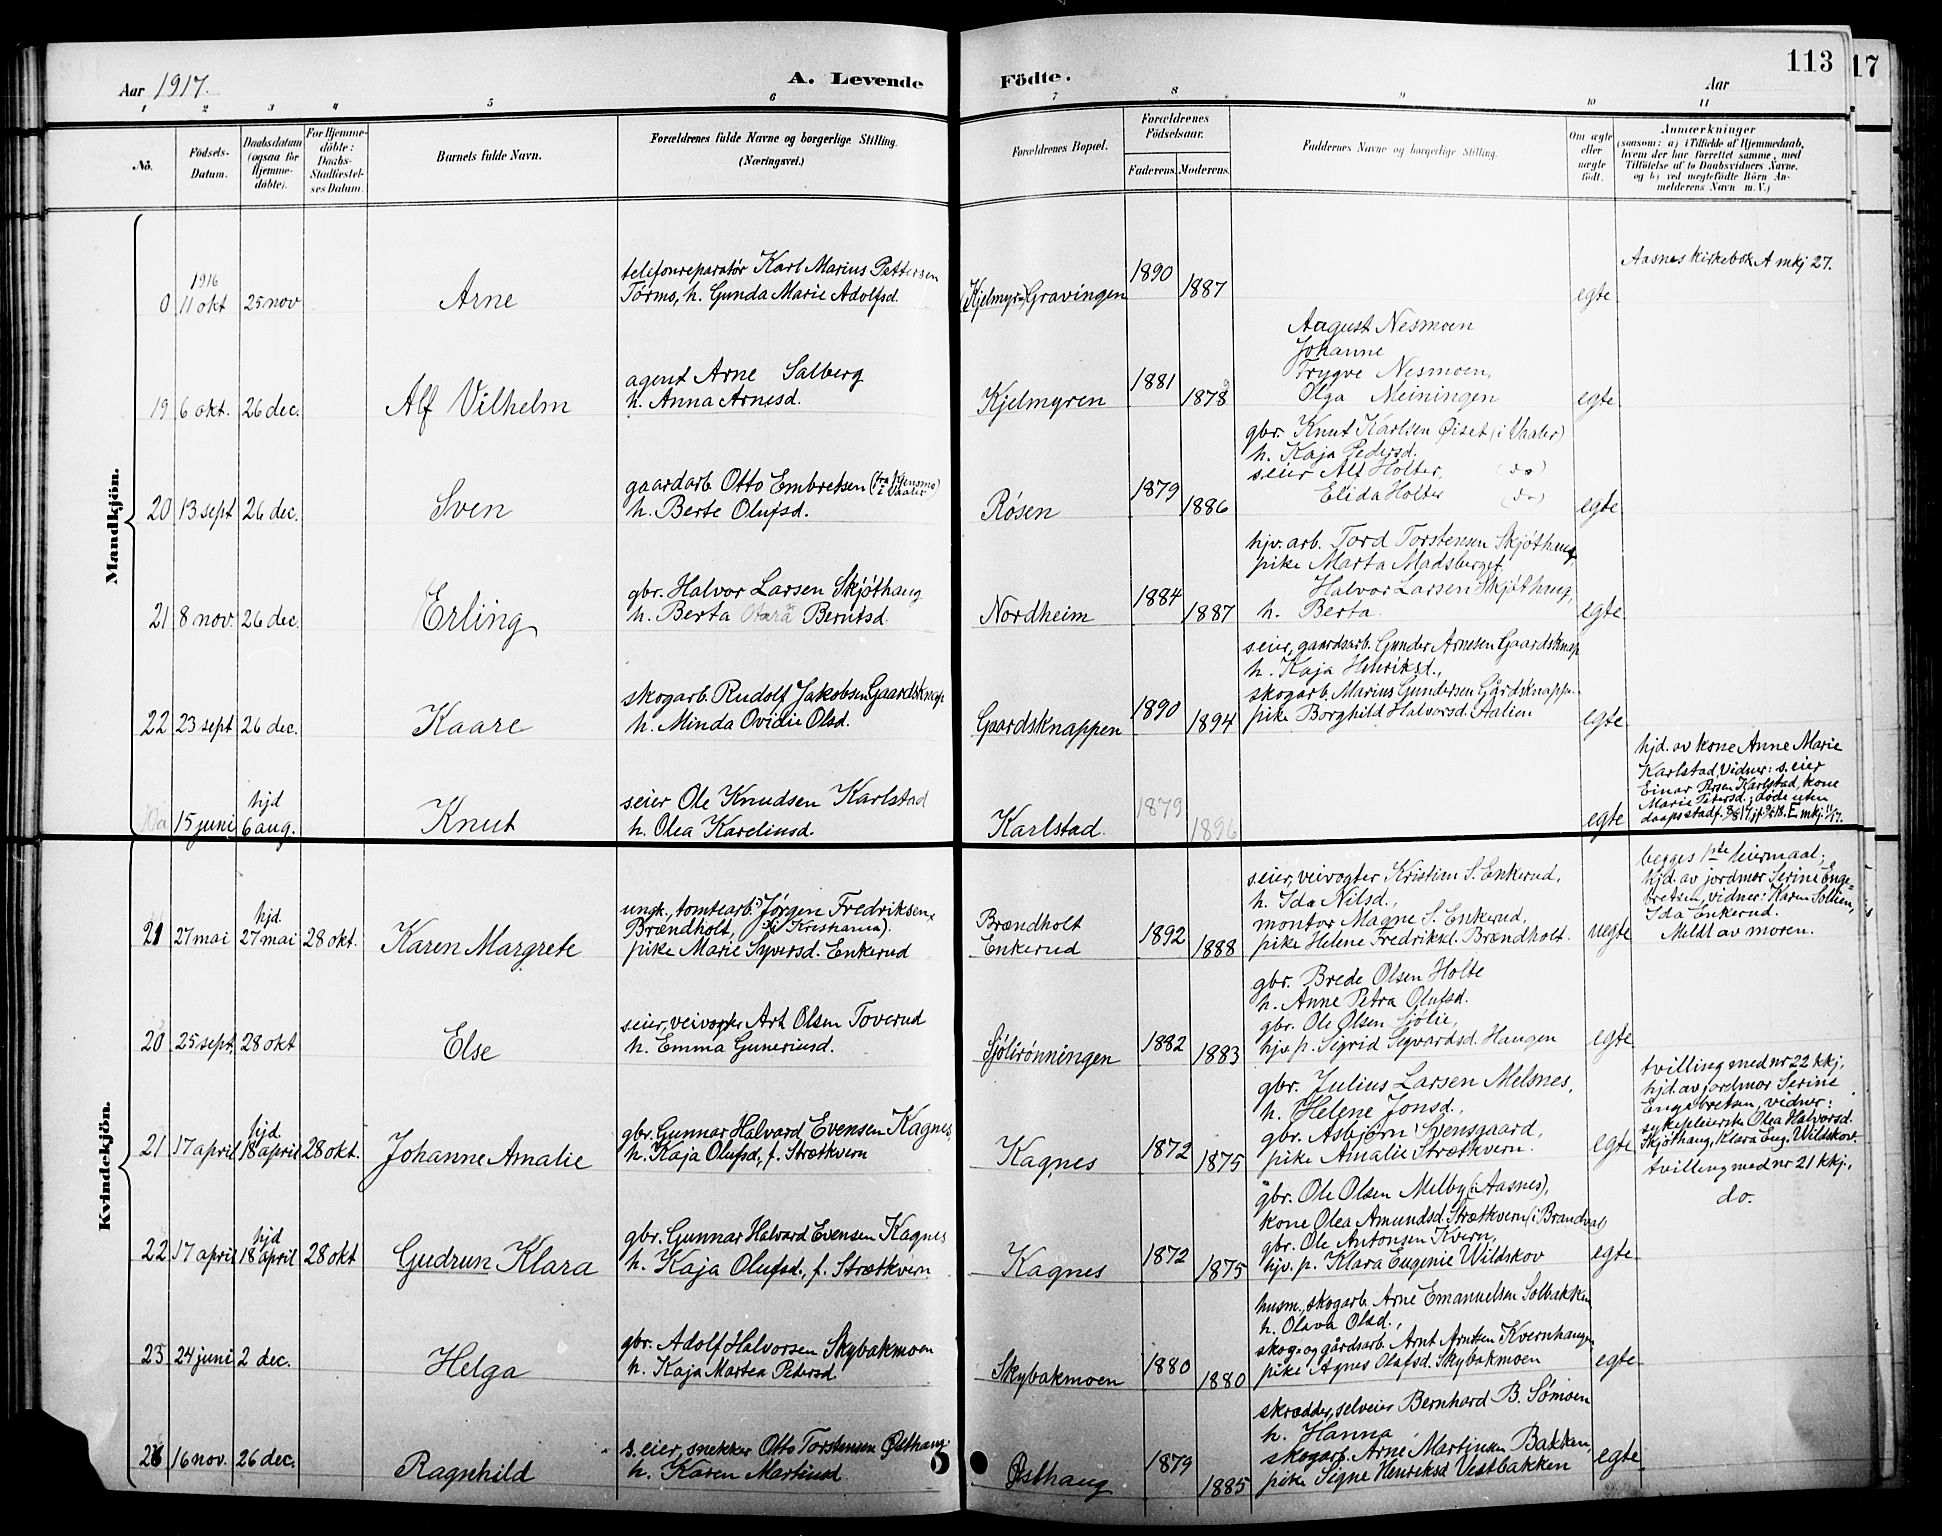 113
17
Aar 1917.
A. Levende Födte.
Aar
1 2 3 4 5 6 7 8 9 10 11
No.
Födsels-Datum.
Daabsdatum (ogsaa for Hjemmedöbte).
For Hjemmedöbte: Daabs-Stadfæstelses Datum.
Barnets fulde Navn.
Forældrenes fulde Navne og borgerlige Stilling.
(Næringsvei.)
Forældrenes Bopæl.
Forældrenes Födselsaar.
Faderens. Moderens.
Faddernes Navne og borgerlige Stilling.
Om ægte eller uægte födt.
Anmærkninger
(saasom: a) i Tilfælde af Hjemmedaab,
hvem der har forrettet samme, med
Tilföielse af to Daabsvidners Navne,
og b) ved uægtefödte Börn An-
melderens Navn m. V.)
Mandkjön.
0 1916 11 okt 25 nov Arne
telefonreparatör Karl Marius Pettersen
Tormo, h. Gunda Marie Adolfsd.
(Kjelmyr) Gravingen 1890 1887 egte
Aasnes kirkebok A mkj 27.
19 6 okt. 26 dec. Alf Vilhelm
agent Arne Salberg
h. Anna Arnesd.
Kjelmyren 1881 1878
August Nesmoen
Johanne
Trygve Nesmoen,
Olga Meiningen
egte
20 13 sept 26 dec. Sven
gaardarb Otto Embretsen (fra i Vaaler)
h. Berte Olufsd.
Røsen 1879 1886
gbr. Knut Karlsen Øiset (i Vaaler)
h. Kaja Pedersd.
seier Alf Holter, (do)
Elida Holter (do)
egte
21 8 nov. 26 dec. Erling
gbr. Halvor Larsen Skjøthaug
h. Berta Berntsd
Nordheim 1884 1887
hjv. arb. Tord Torstensen Skjøthaug,
pike Marta Madsberget,
Halvor Larsen Skjøthaug,
h. Berta.
egte
22 23 sept 26 dec. Kaare
skogarb. Rudolf Jakobsen Gaardsknap
h. Minda Ovidie Olsd.
Gaardsknappen 1890 1894
seier, gaardsarb. Gunder Arnesen Gaardsknap
h. Kaja Henriksd.,
skogarb. Marius Gundersen Gårdsknapp.
pike Borghild Halvorsd. Aalien
egte
15 juni hjd 6 aug. Knut
seier Ole Knudsen Karlstad
h. Olea Kareliusd.
Karlstad. 1879 1896 egte
hjd. av kone Anne Marie
Karlstad, Vidner: s. eier
Einar Persen Karlstad, kone
Marie Petersd.; døde uten
daapsstadf. E mkj. 11/17.
Kvindekjön.
21 27 mai hjd 27 mai 28 okt. Karen Margrete
ungk., tomtearb. Jørgen Fredriksen,
Brændholt, (i Kristiania).
pike Marie Syversd. Enkerud
Brændholt
Enkerud 1892 1888
seier, veivogter, Kristian S. Enkerud,
h. Ida Nilsd.,
montør Magne S. Enkerud,
pike Helene Fredriksd. Brændholt.
uegte
begges 1ste leiermaal;
hjd. av jordmor Serine Enge=
bretsen, vidner: Karen Sollien,
Ida Enkerud.
Meldt av moren.
20 25 sept. 28 okt Else
seier, veivogter Art Olsen Toverud
h. Emma Guneriusd.
Sjölirönningen 1882 1883
gbr. Brede Olsen Holte
h. Anne Petra Olufsd.
gbr. Ole Olsen Sjølie,
hjv. p. Sigrid Sigvardsd. Haugen
egte
21 17 april hjd. 18 april 28 okt. Johanne Amalie
gbr. Gunnar Halvard Evensen Kagnes,
h. Kaja Olufsd., f. Strætkvern
Kagnes 1872 1875
gbr. Julius Larsen Melsnes,
h. Helene Jonsd.,
gbr. Asbjørn Svensgaard,
pike Amalie Strætkvern.
egte
tvilling med nr 22 kkj.
hjd. av jordmor Serine
Engebretsen, vidner:
sykepleierske Olea Halvorsd.
Skjøthaug, Klara Eug. Wildskov.
22 17 april hjd 18 april 28 okt Gudrun Klara
gbr. Gunnar Halvard Evensen Kagnes
h. Kaja Olufsd., f. Strætkvern
Kagnes 1872 1875
gbr. Ole Olsen Melby (i Aasnes),
kone Olea Amundsd. Strætkvern (i Brandval)
gbr. Ole Antonsen Kvern,
hjv. p. Klara Eugenie Wildskov
egte
tvilling med nr 21 kkj.
do.
23 24 juni 2 dec. Helga
gbr. Adolf Halvorsen Skybakmoen
h. Kaja Martea Pedersd.
Skybakmoen 1880 1880
husm., skogarb. Arne Emanuelsen Solbakken
h. Olava Olsd.,
skog= og gårdsarb. Arnt Arntsen Kvernhaugen
pike Agnes Olafsd. Skybakmoen
egte
16 nov. 26 dec. Ragnhild
s. eier, snekker Otto Torstensen Østhaug
h. Karen Martiusd
Østhaug 1879 1885
skrædder, selveier Bernhard B. Sömoen
h. Hanna,
skogarb. Arne Martinsen Bakken,
pike Signe Henriksd Vestbakken
egte